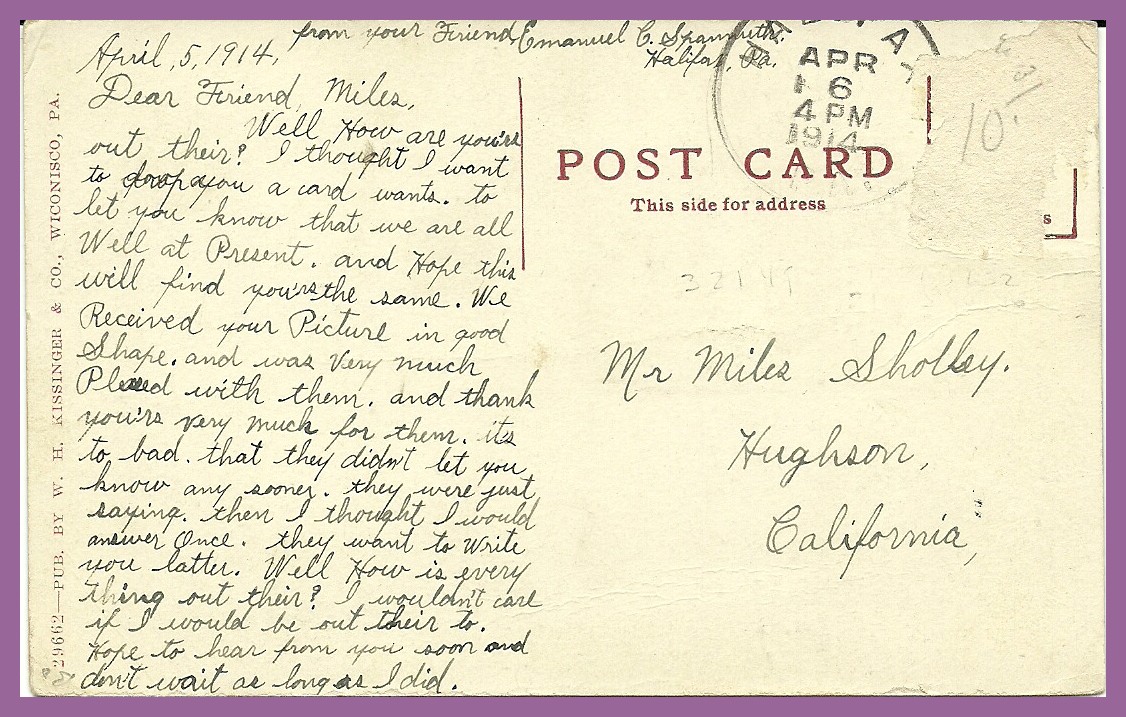 from your Friend, Emanuel C. Spannuth.
Halifax, Pa.
April, 5, 1914.
Dear Friend, Miles,
Well How are you'rs
out their? I thought I want
to drop you a card wants. to
let you know that we are all
Well at Present. and Hope this
will find you'rs the same. We
Received your Picture in good
Shape. and was Very much
Pleased with them. and thank
you'rs very much for them. it's
to bad. that they didn't let you
know any sooner. they were just
saying. then I thought I would
answer Once. they want to Write
you latter. Well How is every
thing out their? I wouldn't care
if I would be out their to.
Hope to hear from you soon and
don't wait as long as I did.
29662—PUB. BY W. H. KISSINGER & CO., WICONISCO, PA.
APR
6
4 PM
1914
POST CARD
This side for address
s
10.
Mr Miles Sholley.
Hughson,
California,